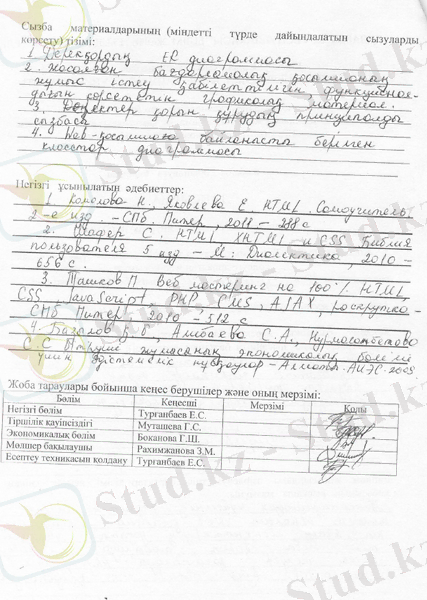 Сызба материалдарының (міндетті түрде дайындалатын сызуларды
көрсету) тізімі:
1. Деректордың ER диаграммасы
2. Жасалған бағдарламалық қосымшаның
жұмыс істеу қабілеттілігін, функционал-
дығын көрсететін графикалық материал.
3. Деректер қорын құрудың принципалды
сызбасы
4. Web-қосымшаға байланысты берілген
кластар диаграммасы
Негізгі ұсынылатын әдебиеттер:
1. Н. Яковлева Е. HTML. Самоучитель,
2-е изд. - СПб. Питер, 2011 - 288 с
2. Шафер С. HTML, XHTML и CSS Библия
пользователя 5 изд - М: Диалектика, 2010 -
656 с.
3. Ташков П. Веб мастеринг на 100% HTML,
CSS, JavaScript, PHP, CMS, AJAX, раскрутка -
СПб Питер, 2010 - 512 с
4. Алибаева С.А.,
С.С. экономикалық бөлімі
үшін әдістемелік нұсқаулар - Алматы. АИЭС. 2009.
Жоба тараулары бойынша кеңес берушілер және оның мерзімі:
Бөлім Кеңесші Мерзімі Қолы
Негізгі бөлім Турганбаев Е.С.
Тіршілік қауіпсіздігі Муташева Г.С.
Экономикалық бөлім Боканова Г.Ш.
Мөлшер бақылаушы Рахимжанова З.М.
Есептеу техникасын қолдану Турганбаев Е.С.
Stud.kz - Stud.kz
Stud.kz - Stud.kz
Stud.kz
Stud.kz